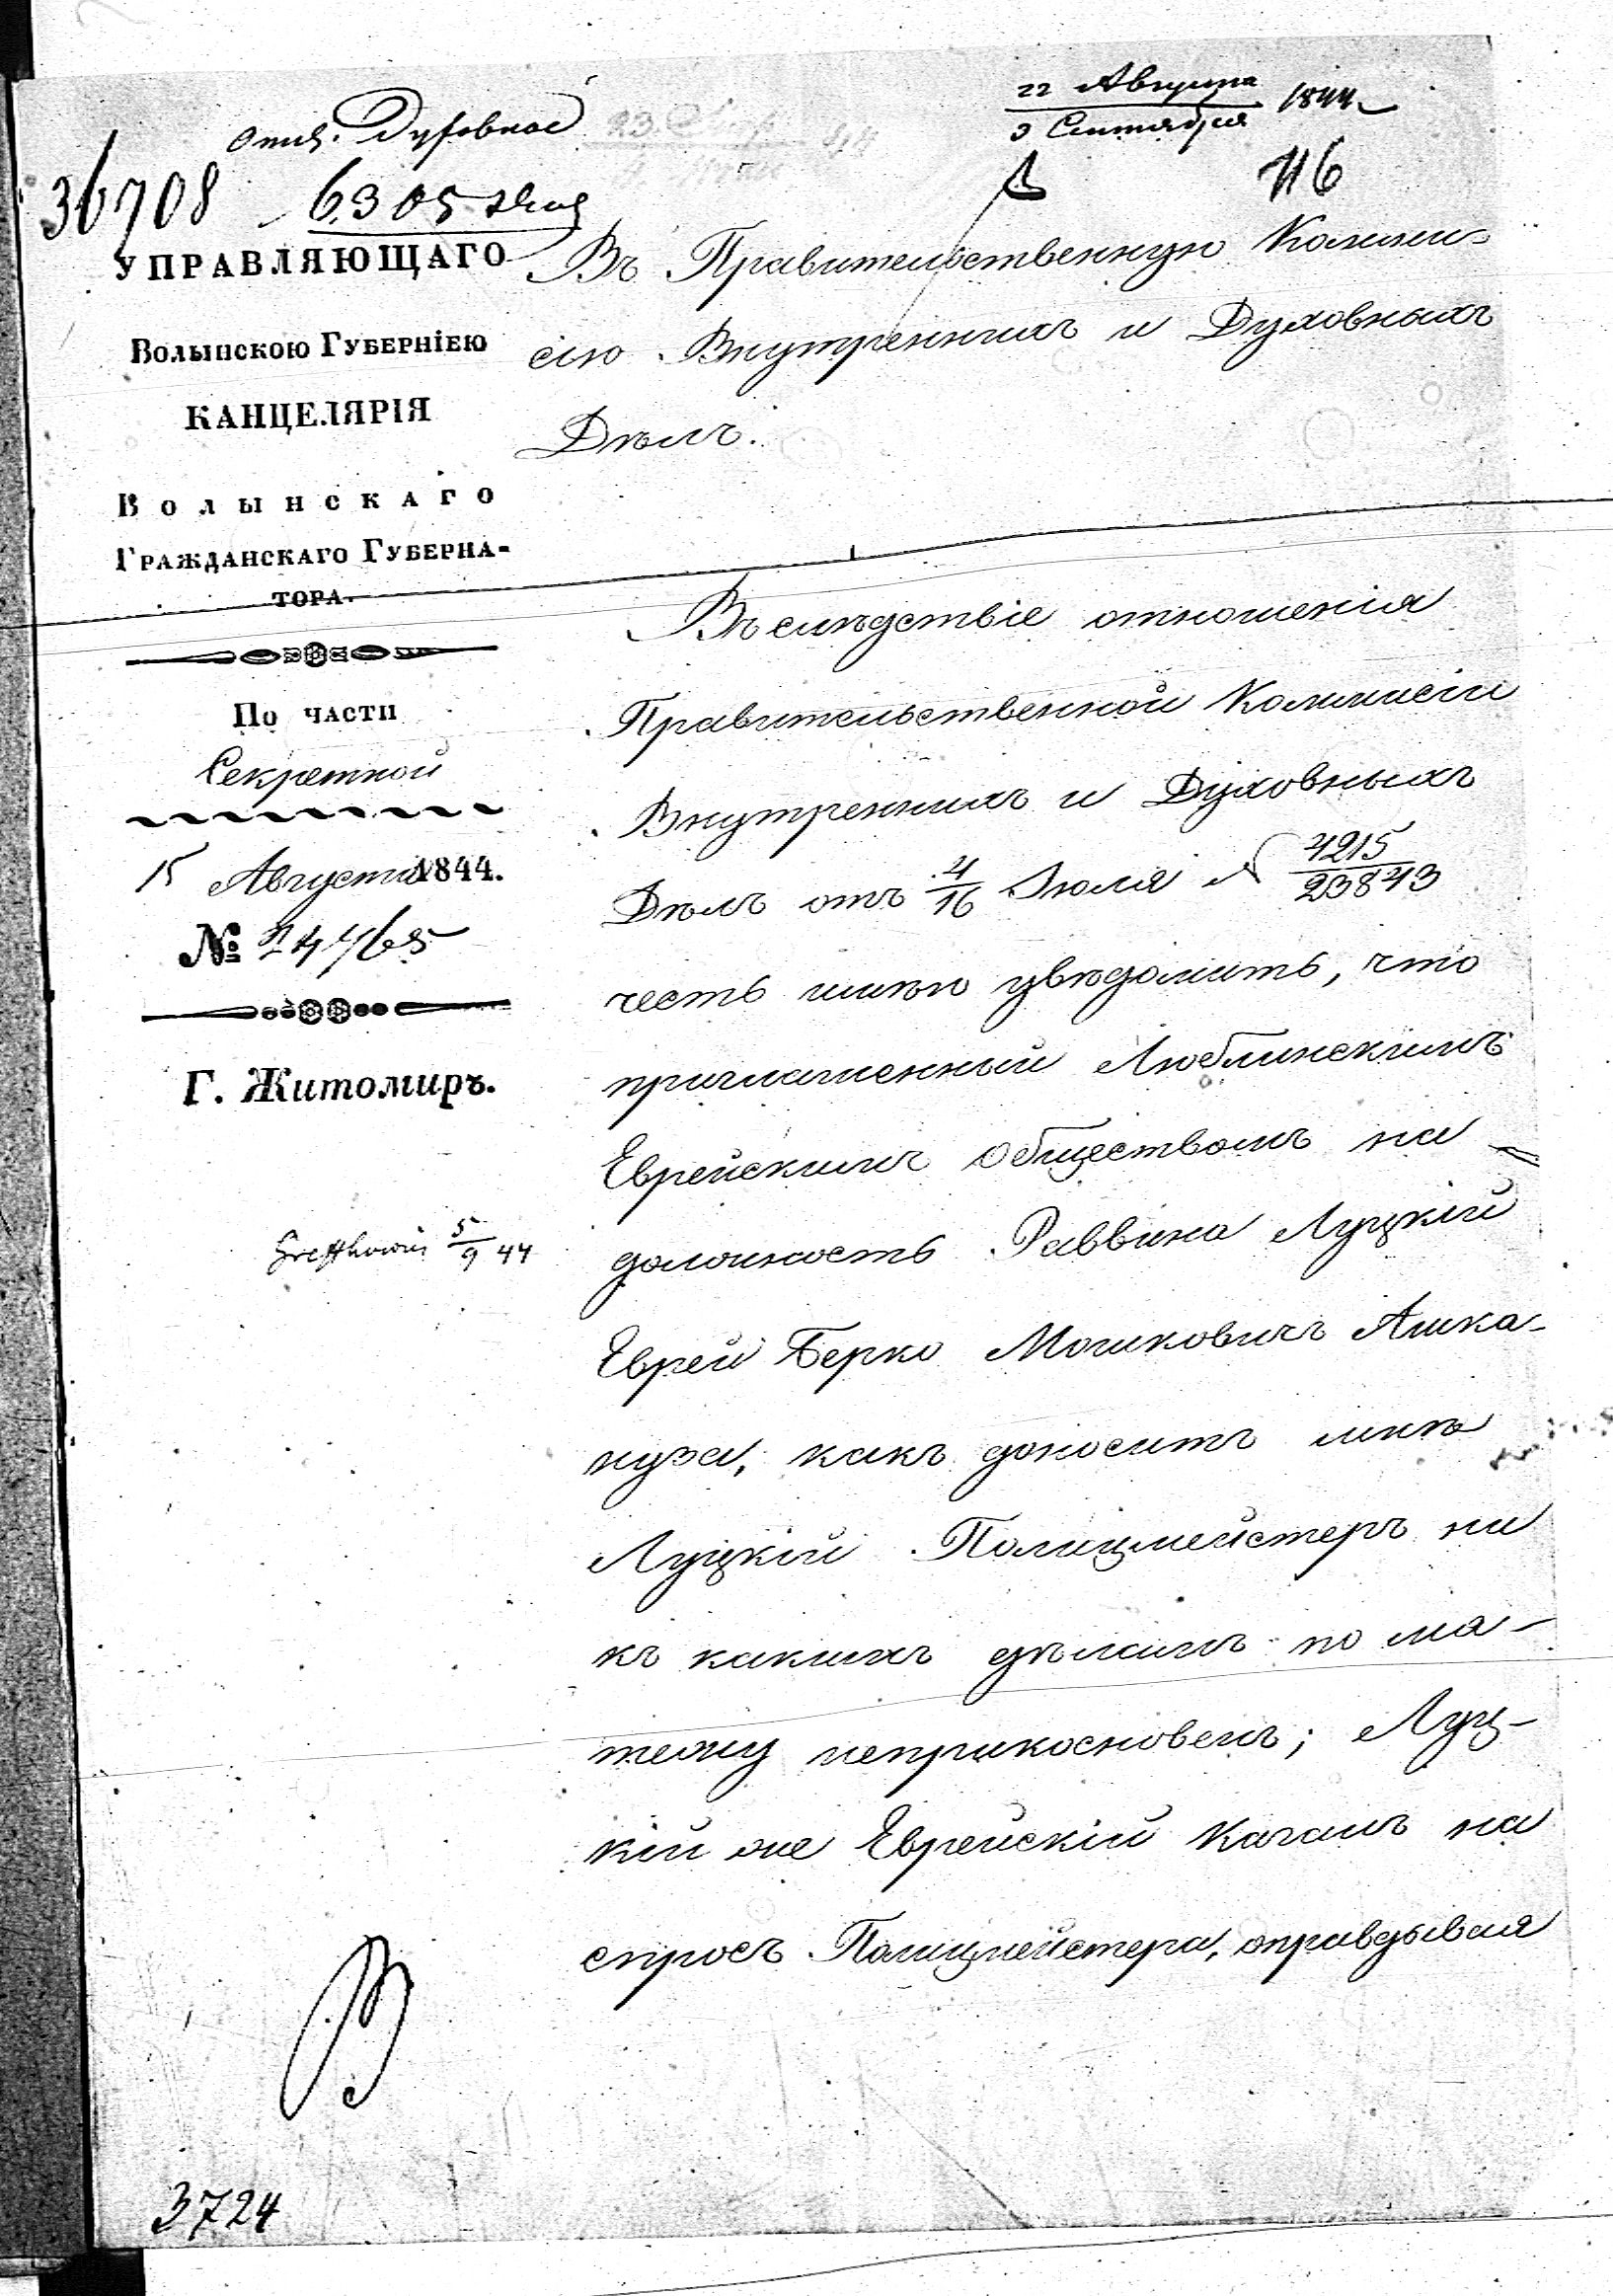 22 Августа
3 Сентября 1844
Отд. Духовное
116
36708 6305
УПРАВЛЯЮЩАГО
Волынскою Губерніею
КАНЦЕЛЯРІЯ
Волынскаго
Гражданскаго Губерна-
тора.
По части
Секретной
15 Августа 1844.
№ 24765
Г. Житомиръ.
5/9 44
Въ Правительственную Комми-
сію Внутреннихъ и Духовныхъ
Дѣлъ.
Въ слѣдствіе отношенія
Правительственной Коммисіи
Внутреннихъ и Духовныхъ
Дѣлъ отъ 4/16 Іюля № 4215/23843
честь имѣю увѣдомить, что
приглашенный Люблинскимъ
Еврейскимъ обществомъ на
должность Раввина Луцкій
Еврей Берко Мошковичъ Ашка-
нуза, какъ доноситъ мнѣ
Луцкій Полицмейстеръ ни
къ какимъ дѣламъ по ма-
тежу неприкосновенъ; Луц-
кій же Еврейскій Кагалъ на
спросъ Полицмейстера, оправдывая
3724